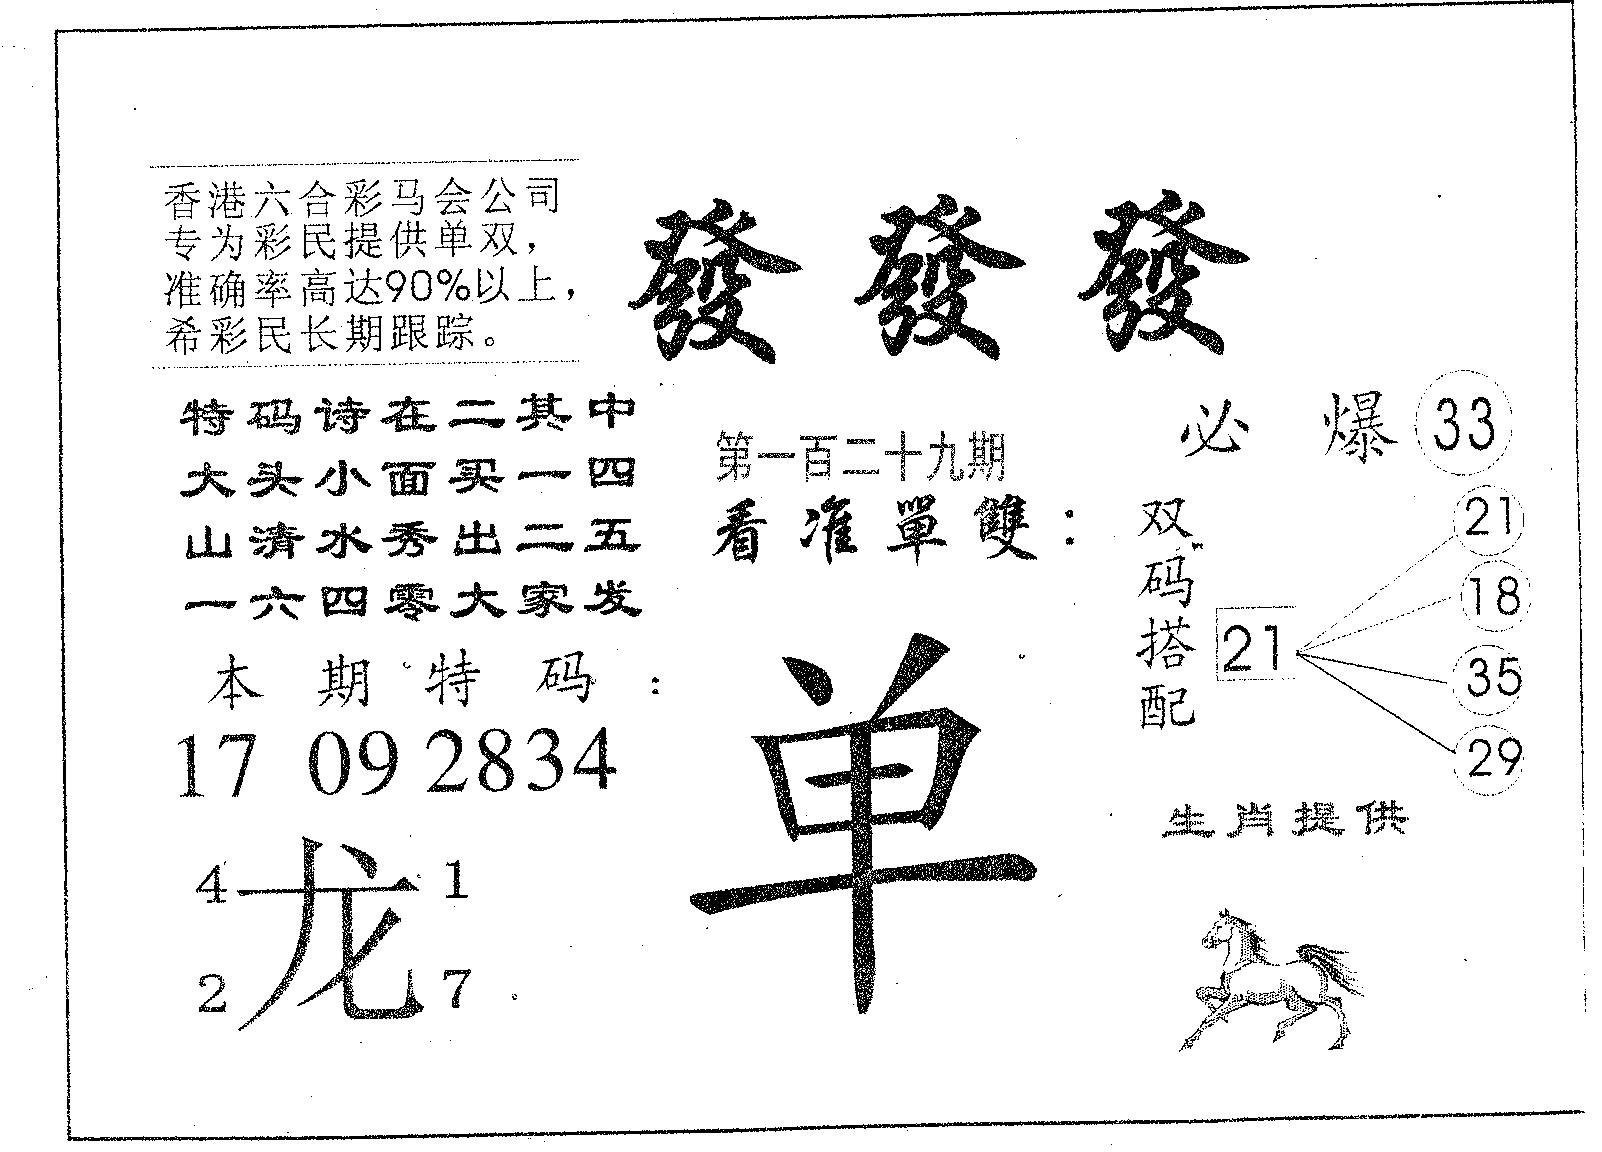 香港六合彩马会公司
专为彩民提供单双，
准确率高达90%以上，
希彩民长期跟踪。
發發發
特码诗在二其中
大头小面买一四
山清水秀出二五
一六四零大家发
第一百二十九期
看准單雙：
单
必爆33
双码搭配
21
21
18
35
29
本期特码：
17 09 2834
4 1
龙
2 7
生肖提供